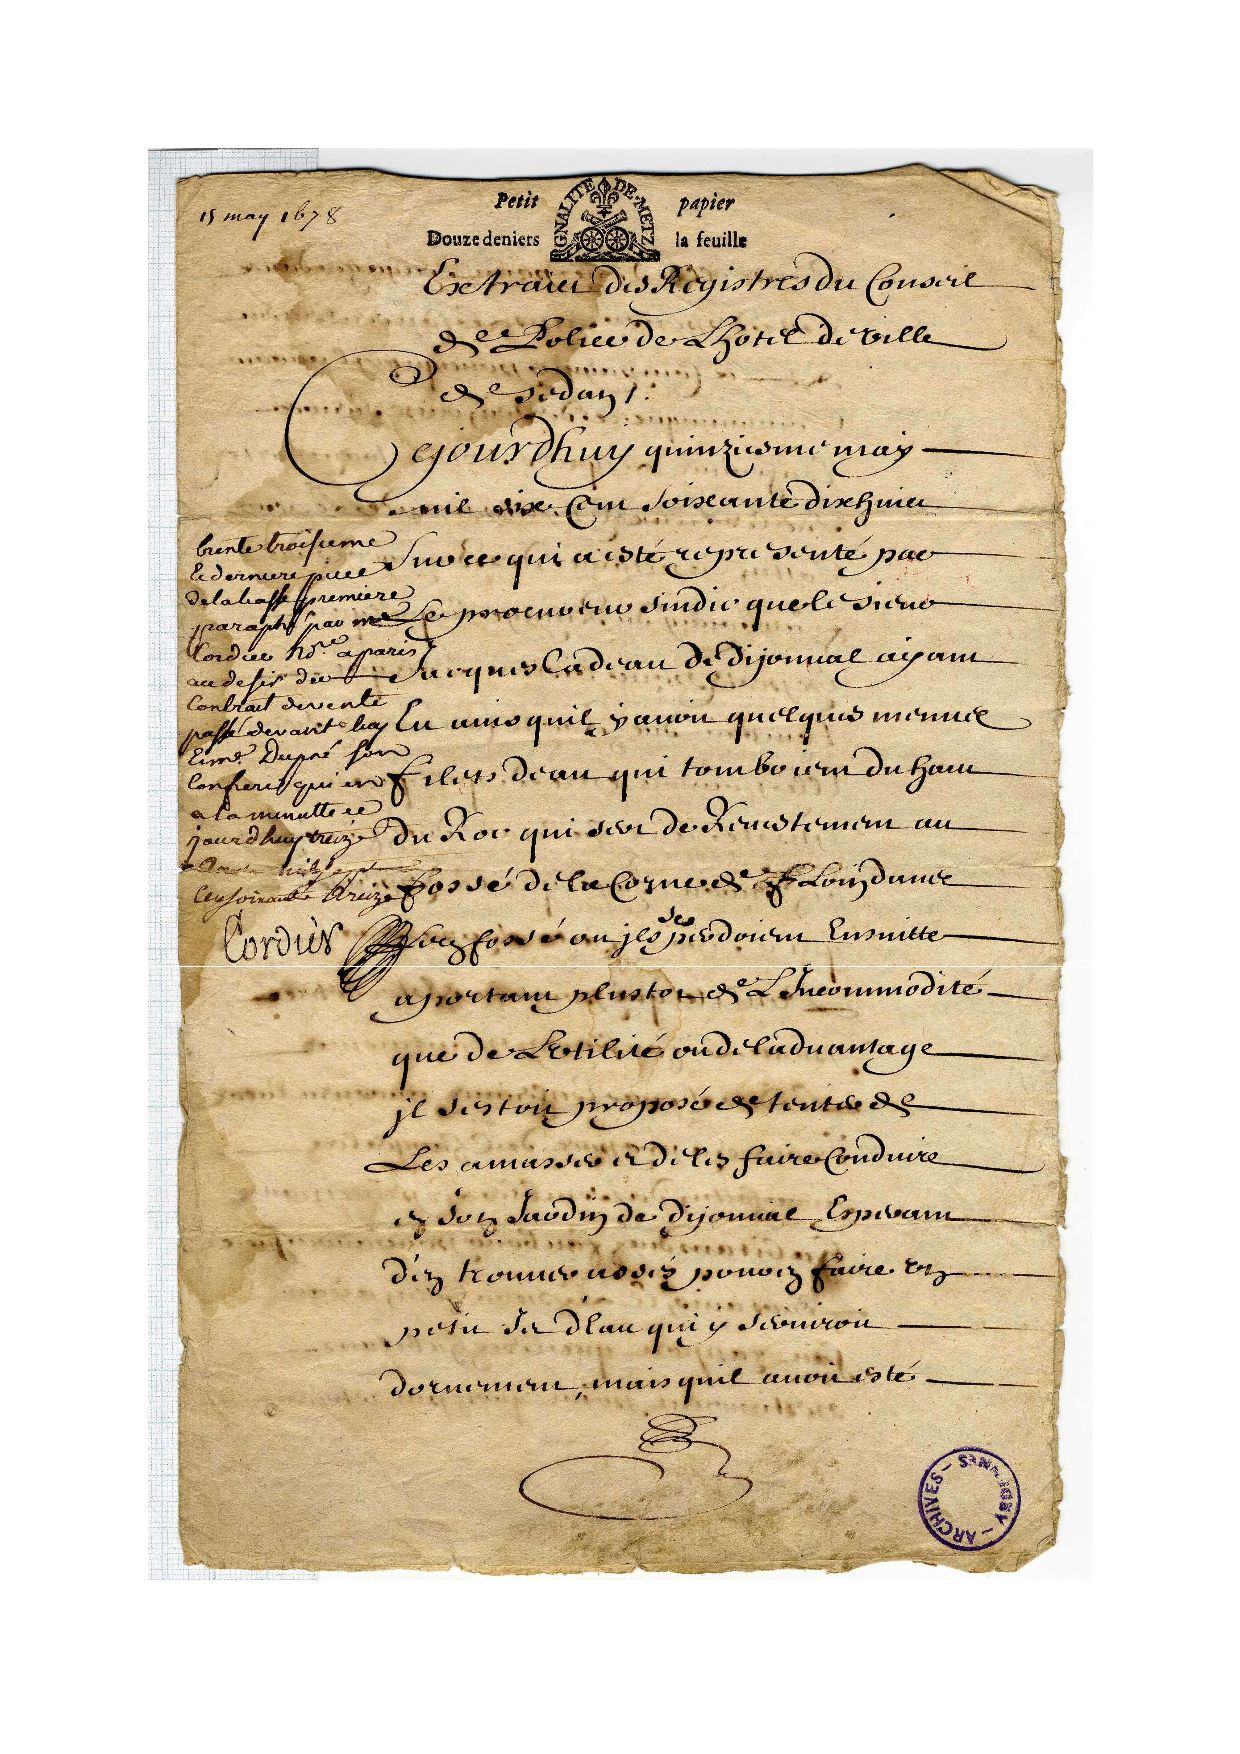 15 may 1678
Petit papier
GNALITE DE METZ
Douze deniers la feuille
Extraict des Registres du Conseil
de Police de Lhotel de ville
de sedan /.
Cejourdhuy quinziesme may
mil six Cent soixante dixhuict
Sur ce qui a esté representé par
Le procureur sindic que le sieur
Jacques Cadeau de Dijonual ayant
Eu auis quil y auoit quelques menues
filets deau qui tomboient du haut
du Roc qui ser de Reuestement au
fossé de la Corne de Floin dans
Ledit fossé ou jls se perdoient Ensuitte
aportant plustot de L'Jncommodité
que de Lvtilité ou de laduantage
jl sestoit proposé de tenter de
Les amasser et de les faire Conduire
en son Jardin de Dijonual Esperant
d'en trouuer assés pouuoir faire vn
petit Jet d'eau qui y seruiroit
dornement, mais quil auoit esté
trente troisieme
et derniere piece
de la liasse premiere
paraphé par me
Cordier Nore. a paris
au desir du
Contrat de vente
passé devant luy
Et me. Dupré son
Confrere qui en
a la minutte ce
jourdhuy treize
Aoust mil sept
Cent soixante treize
Cordier
ARCHIVES